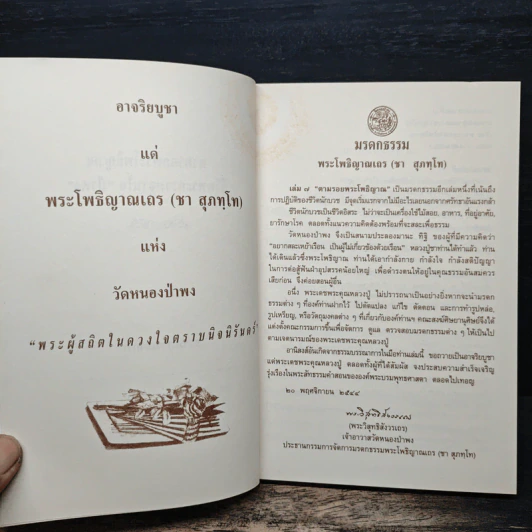 อาจริยบูชา
แด่
พระโพธิญาณเถร (ชา สุภทฺโท)
แห่ง
วัดหนองป่าพง
"พระผู้สถิตในดวงใจตราบนิจนิรันดร์"
มรดกธรรม
พระโพธิญาณเถร (ชา สุภทฺโท)
เล่ม ๗ "ตามรอยพระโพธิญาณ" เป็นมรดกธรรมอีกเล่มหนึ่งที่เน้นถึง
การปฏิบัติของชีวิตนักบวช มีจุดเริ่มแรกจากไม่มีอะไรเลยนอกจากศรัทธาอันแรงกล้า
ชีวิตนักบวชเป็นชีวิตอิสระ ไม่ว่าจะเป็นเครื่องใช้ไม้สอย, อาหาร, ที่อยู่อาศัย,
ยารักษาโรค ตลอดทั้งความคิดต้องพร้อมที่จะสละเพื่อธรรม
วัดหนองป่าพง จึงเป็นสนามประลองมานะ ทิฐิ ของผู้ที่มีความคิดว่า
"อยากสละเหย้าเรือน เป็นผู้ไม่เกี่ยวข้องด้วยเรือน" หลวงปู่ชาท่านได้ทำแล้ว ท่าน
ได้เดินแล้วซึ่งพระโพธิญาณ ท่านได้เอากำลังกาย กำลังใจ กำลังสติปัญญา
ในการต่อสู้ฟันฝ่าอุปสรรคน้อยใหญ่ เพื่อดำรงตนให้อยู่ในคุณธรรมอันสมควร
เสียก่อน จึงค่อยสอนผู้อื่น
อนึ่ง พระเดชพระคุณหลวงปู่ ไม่ปรารถนาเป็นอย่างยิ่งหากจะนำมรดก
ธรรมต่าง ๆ ที่องค์ท่านฝากไว้ ไปดัดแปลง แก้ไข ตัดตอน และการทำรูปหล่อ,
รูปเหรียญ, หรือวัตถุมงคลต่าง ๆ ที่เกี่ยวกับองค์ท่าน คณะสงฆ์ศิษยานุศิษย์จึงได้
แต่งตั้งคณะกรรมการขึ้นเพื่อจัดการ ดูแล ตรวจสอบมรดกธรรมต่าง ๆ ให้เป็นไป
ตามเจตนารมณ์ของพระเดชพระคุณหลวงปู่
อานิสงส์อันเกิดจากธรรมบรรณาการในมือท่านเล่มนี้ ขอถวายเป็นอาจริยบูชา
แด่พระเดชพระคุณหลวงปู่ ตลอดทั้งผู้ที่ได้สัมผัส จงประสบความสำเร็จเจริญ
รุ่งเรืองในพระสัทธรรมคำสอนขององค์พระบรมพุทธศาสดา ตลอดไปเทอญ
๒๐ พฤศจิกายน ๒๕๔๔
(พระวิสุทธิสังวรเถร)
เจ้าอาวาสวัดหนองป่าพง
ประธานกรรมการจัดการมรดกธรรมพระโพธิญาณเถร (ชา สุภทฺโท)